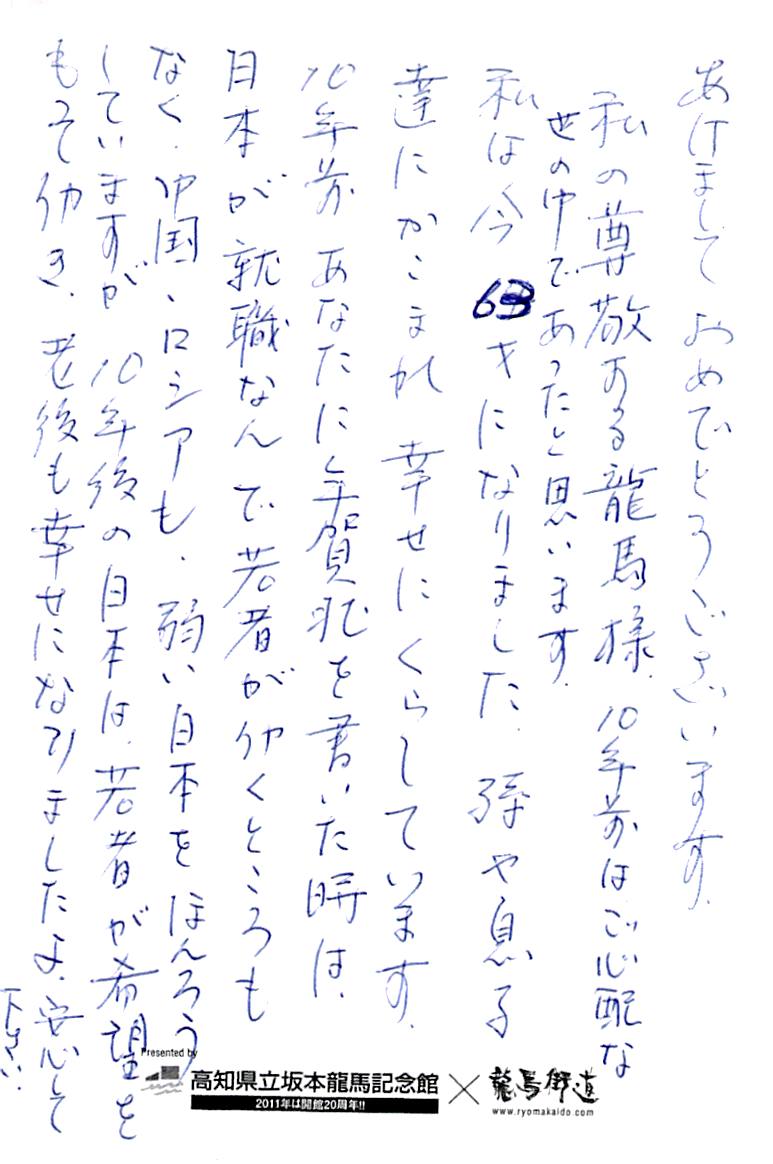 あけまして おめでとうございます.
私の尊敬する龍馬様. 10年前は ご心配な
世の中であったと思います.
私は今 63才になりました. 孫や息子
達にかこまれ 幸せにくらしています.
10年前 あなたに年賀状を書いた時は.
日本が就職なんで若者が仂くところも
なく. 中国、ロシアも. 弱い日本をほんろう
していますが 10年後の日本は. 若者が希望を
もって仂き. 老後も幸せになりましたよ. 安心して
下さい.
Presented by
高知県立坂本龍馬記念館
2011年は開館20周年!!
×
龍馬街道
www.ryomakaido.com